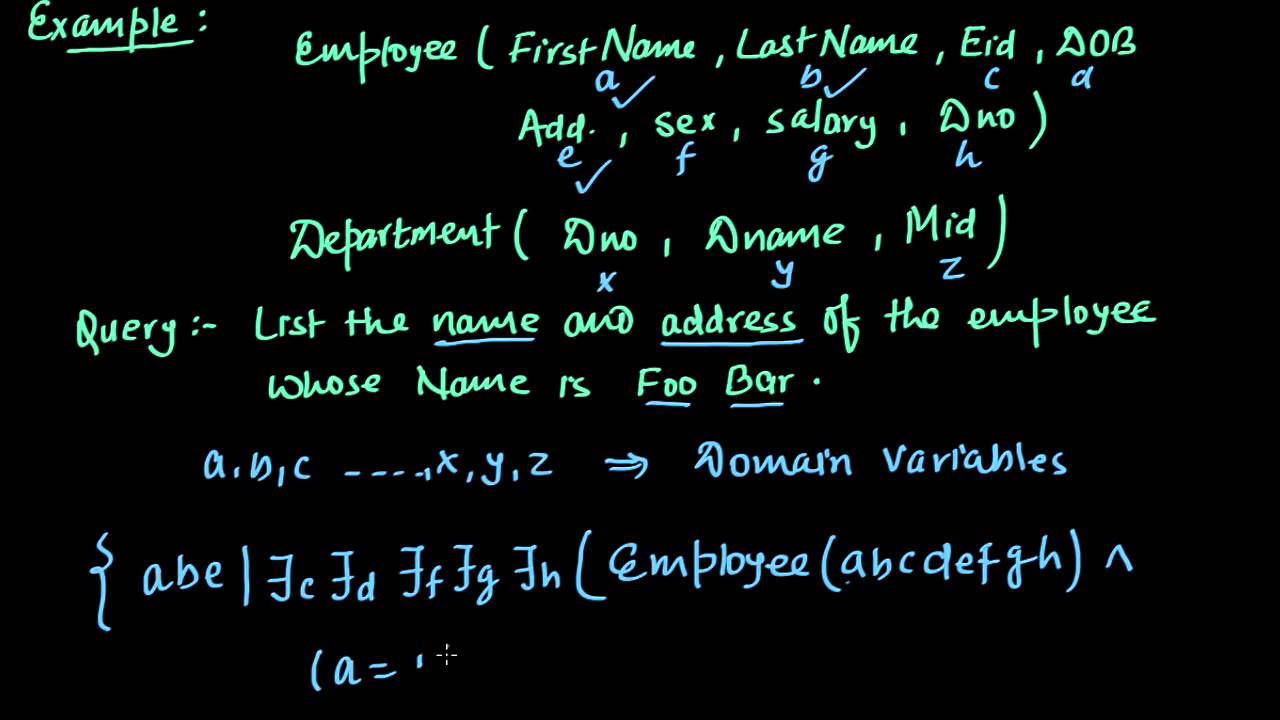 Example :
Employee ( First Name , Last Name , Eid , DOB
a b c d
Add. , sex , salary , Dno )
e f g h
Department ( Dno , Dname , Mid )
x y z
Query :- List the name and address of the employee
whose Name is Foo Bar .
a, b, c ----, x, y, z ⇒ Domain Variables
{ abe | ∃c ∃d ∃f ∃g ∃h ( Employee (abcdefgh) ∧
( a = '